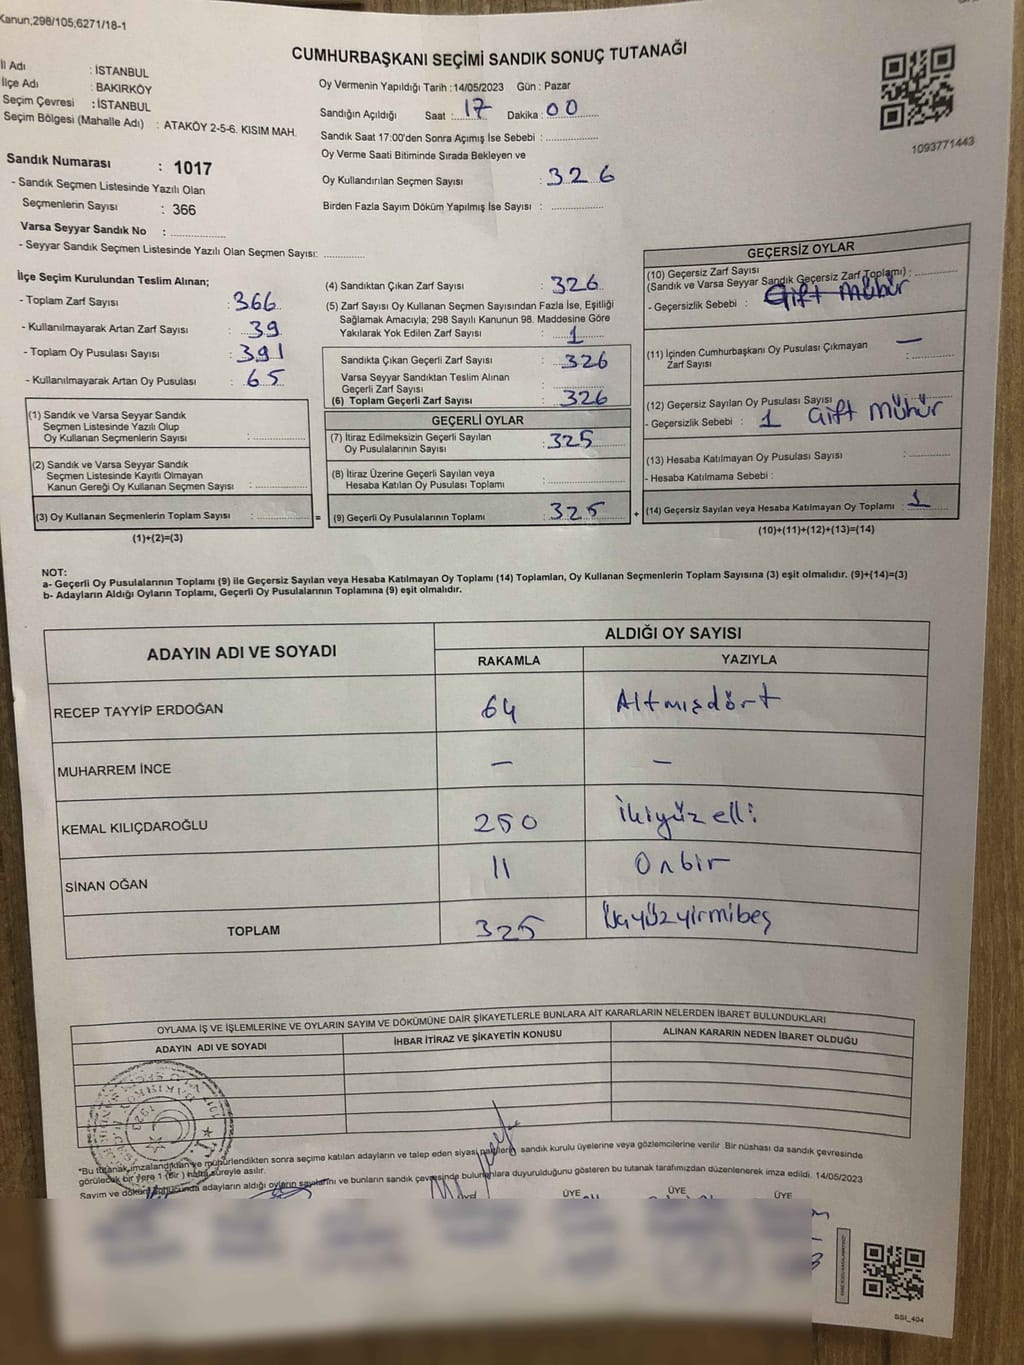 Kanun;298/105;6271/18-1
CUMHURBAŞKANI SEÇİMİ SANDIK SONUÇ TUTANAĞI
İl Adı : İSTANBUL
İlçe Adı : BAKIRKÖY
Seçim Çevresi : İSTANBUL
Seçim Bölgesi (Mahalle Adı) : ATAKÖY 2-5-6. KISIM MAH.
Oy Vermenin Yapıldığı Tarih : 14/05/2023 Gün : Pazar
Sandığın Açıldığı Saat : 17 Dakika : 00
Sandık Saat 17:00'den Sonra Açımış İse Sebebi :
Oy Verme Saati Bitiminde Sırada Bekleyen ve
Oy Kullandırılan Seçmen Sayısı : 326
Birden Fazla Sayım Döküm Yapılmış İse Sayısı :
1093771443
Sandık Numarası : 1017
- Sandık Seçmen Listesinde Yazılı Olan
Seçmenlerin Sayısı : 366
Varsa Seyyar Sandık No :
- Seyyar Sandık Seçmen Listesinde Yazılı Olan Seçmen Sayısı:
İlçe Seçim Kurulundan Teslim Alınan;
- Toplam Zarf Sayısı : 366
- Kullanılmayarak Artan Zarf Sayısı : 39
- Toplam Oy Pusulası Sayısı : 391
- Kullanılmayarak Artan Oy Pusulası : 65
(1) Sandık ve Varsa Seyyar Sandık
Seçmen Listesinde Yazılı Olup
Oy Kullanan Seçmenlerin Sayısı :
(2) Sandık ve Varsa Seyyar Sandık
Seçmen Listesinde Kayıtlı Olmayan
Kanun Gereği Oy Kullanan Seçmen Sayısı :
(3) Oy Kullanan Seçmenlerin Toplam Sayısı : =
(1)+(2)=(3)
(4) Sandıktan Çıkan Zarf Sayısı : 326
(5) Zarf Sayısı Oy Kullanan Seçmen Sayısından Fazla İse, Eşitliği
Sağlamak Amacıyla; 298 Sayılı Kanunun 98. Maddesine Göre
Yakılarak Yok Edilen Zarf Sayısı : 1
Sandıkta Çıkan Geçerli Zarf Sayısı : 326
Varsa Seyyar Sandıktan Teslim Alınan
Geçerli Zarf Sayısı :
(6) Toplam Geçerli Zarf Sayısı : 326
GEÇERLİ OYLAR
(7) İtiraz Edilmeksizin Geçerli Sayılan
Oy Pusulalarının Sayısı : 325
(8) İtiraz Üzerine Geçerli Sayılan veya
Hesaba Katılan Oy Pusulası Toplamı :
(9) Geçerli Oy Pusulalarının Toplamı : 325 +
GEÇERSİZ OYLAR
(10) Geçersiz Zarf Sayısı
(Sandık ve Varsa Seyyar Sandık Geçersiz Zarf Toplamı) :
- Geçersizlik Sebebi : Gift Mühür
(11) İçinden Cumhurbaşkanı Oy Pusulası Çıkmayan —
Zarf Sayısı :
(12) Geçersiz Sayılan Oy Pusulası Sayısı :
- Geçersizlik Sebebi : 1 Gift Mühür
(13) Hesaba Katılmayan Oy Pusulası Sayısı :
- Hesaba Katılmama Sebebi :
(14) Geçersiz Sayılan veya Hesaba Katılmayan Oy Toplamı : 1
(10)+(11)+(12)+(13)=(14)
NOT:
a- Geçerli Oy Pusulalarının Toplamı (9) ile Geçersiz Sayılan veya Hesaba Katılmayan Oy Toplamı (14) Toplamları, Oy Kullanan Seçmenlerin Toplam Sayısına (3) eşit olmalıdır. (9)+(14)=(3)
b- Adayların Aldığı Oyların Toplamı, Geçerli Oy Pusulalarının Toplamına (9) eşit olmalıdır.
ADAYIN ADI VE SOYADI
ALDIĞI OY SAYISI
RAKAMLA YAZIYLA
RECEP TAYYİP ERDOĞAN 64 Altmışdört
MUHARREM İNCE — —
KEMAL KILIÇDAROĞLU 250 İkiyüzelli
SİNAN OĞAN 11 Onbir
TOPLAM 325 Üçyüzyirmibeş
OYLAMA İŞ VE İŞLEMLERİNE VE OYLARIN SAYIM VE DÖKÜMÜNE DAİR ŞİKAYETLERLE BUNLARA AİT KARARLARIN NELERDEN İBARET BULUNDUKLARI
ADAYIN ADI VE SOYADI İHBAR İTİRAZ VE ŞİKAYETİN KONUSU ALINAN KARARIN NEDEN İBARET OLDUĞU
*Bu tutanak imzalandıktan ve mühürlendikten sonra seçime katılan adayların ve talep eden siyasi partilerin sandık kurulu üyelerine veya gözlemcilerine verilir. Bir nüshası da sandık çevresinde
görülecek bir yere 1 (Bir) hafta süreyle asılır.
Sayım ve döküm sonucunda adayların aldığı oyların sayılarını ve bunların sandık çevresinde bulunanlara duyurulduğunu gösteren bu tutanak tarafımızdan düzenlenerek imza edildi. 14/05/2023
ÜYE ÜYE ÜYE
SSI_404